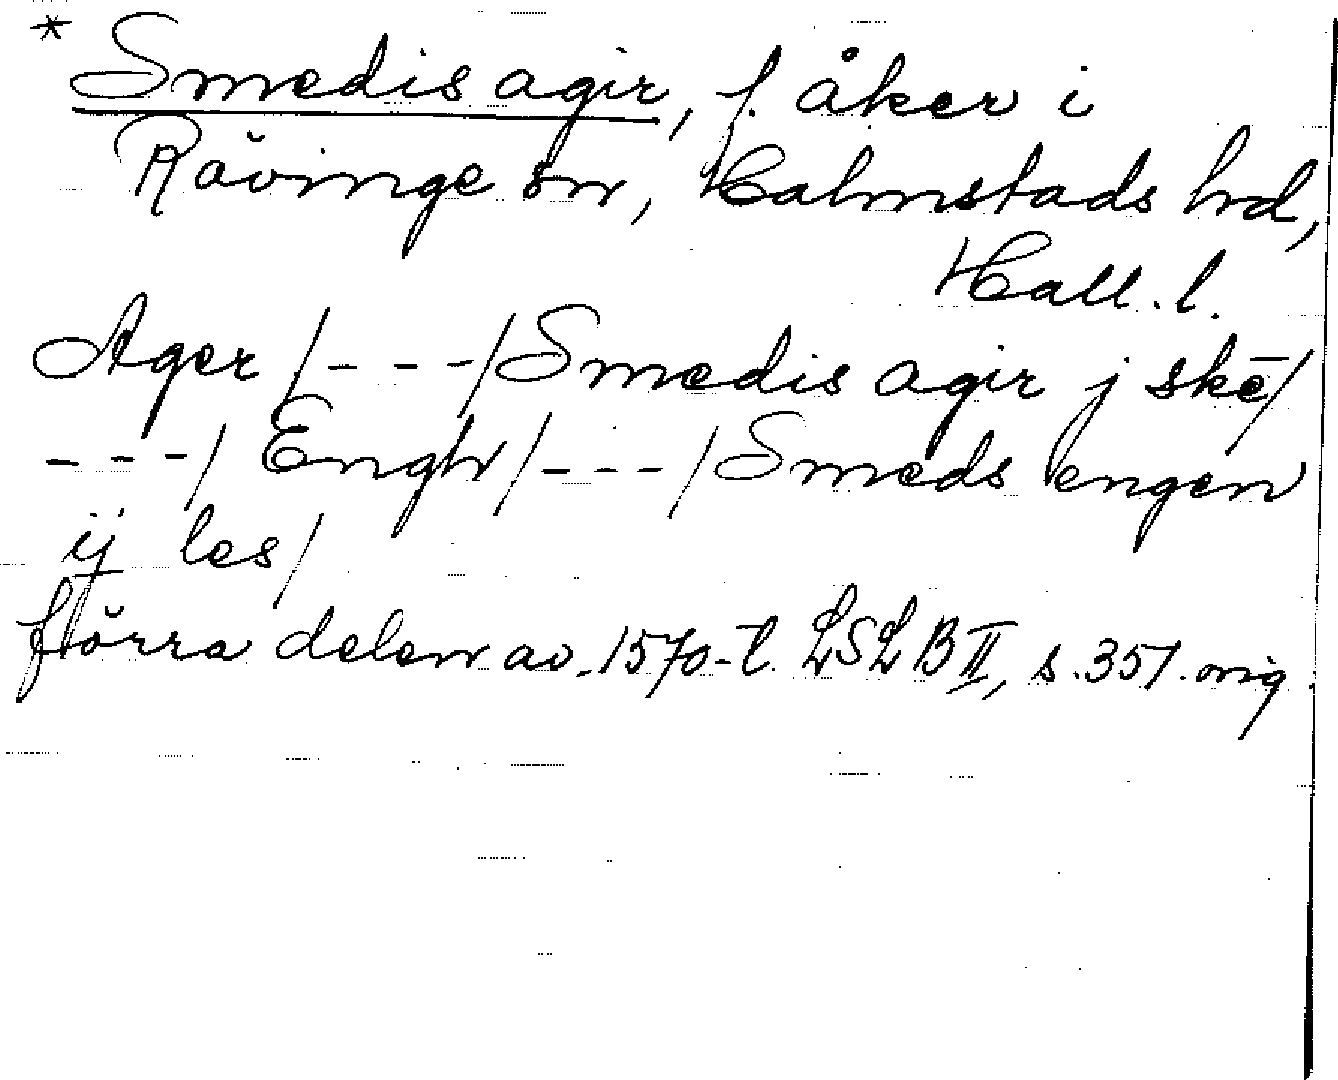 * Smedis agir, f. åker i
Rävinge sn, Halmstads hd,
Hall. l.
Ager /- - -/ Smedis agir j skē/
- - -/ Engh /- - -/ Smeds engen
ij les/
förra delen av 1570-t. LSLB II, s. 351. orig.